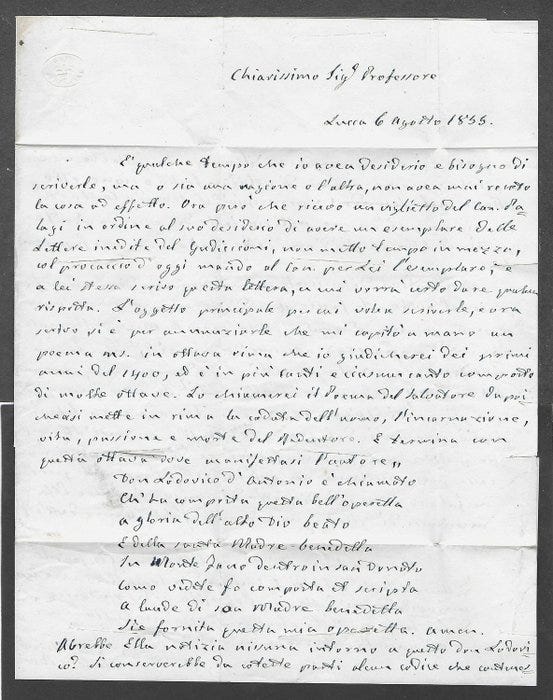 Chiarissimo Sigr Professore
Lucca 6 Agosto 1855.
E' qualche tempo che io avea desiderio e bisogno di
scriverle, ma o sia una ragione o l'altra, non avea mai recato
la cosa ad effetto. Ora però che ricevo un viglietto del Can. Pa=
lagi in ordine al suo desiderio di avere un esemplare delle
Lettere inedite del Guidiccioni, non metto tempo in mezzo,
col procaccio d'oggi mando al Can. per Lei l'esemplare; e
a lei stessa scrivo questa lettera, a cui vorrà certo dare qualche
risposta. L'oggetto principale per cui volea scriverle, e ora
scrivo si è per annunziarle che mi capitò a mano un
poema ms. in ottava rima che io giudicherei dei primi
anni del 1400, ed è in più canti e ciascun canto composto
di molte ottave. Lo chiamerei il Poema del Salvatore dapoi
che si mette in rima la caduta dell'uomo, l'incarnazione,
vita, passione e morte del Redentore. E termina con
questa ottava dove manifestasi l'autore„
Don Lodovico d'Antonio è chiamato
Ch'ha comprita questa bell'operetta
a gloria dell'alto Dio beato
E della santa Madre benedetta
In Monte Fano dentro in san Donato
como vedete fo composta et scripta
a laude di soa Madre benedetta
Sie fornita questa mia operetta. amen.
Avrebbe Ella notizia nissuna intorno a questo don Lodovi=
co? Si conserverebbe da coteste parti alcun codice che contenes=